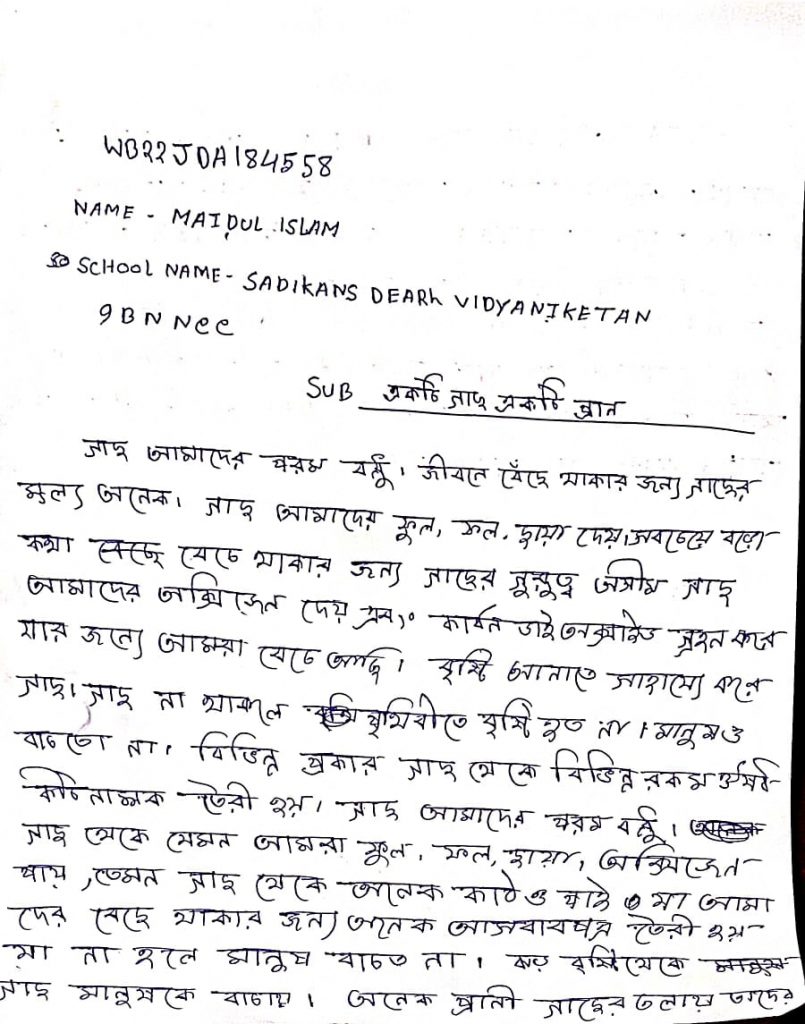 WB22JDA184558
NAME - MAIDUL ISLAM
SCHOOL NAME - SADIKANS DEARh VIDYANIKETAN
9BNNCC
SUB একটি গাছ একটি প্রান
গাছ আমাদের পরম বন্ধু। জীবনে বেঁছে থাকার জন্য গাছের
মূল্য অনেক। গাছ আমাদের ফুল, ফল, ছায়া দেয়। সবচেয়ে বড়ো
কথা বেচে থাকার জন্য গাছের গুরুত্ব অসীম গাছ
আমাদের অক্সিজেন দেয় এবং কার্বন ডাই অক্সাইড গ্রহন করে
যার জন্যে আমরা বেচে আছি। বৃষ্টি আনাতে সাহায্যে করে
গাছ। গাছ না থাকলে পৃথিবীতে বৃষ্টি হত না। মানুষও
বাচতো না। বিভিন্ন প্রকার গাছ থেকে বিভিন্ন রকম ঔষধ
কিটনাশক তৈরী হয়। গাছ আমাদের পরম বন্ধু।
গাছ থেকে যেমন আমরা ফুল, ফল, ছায়া, অক্সিজেন
পায়, তেমন গাছ থেকে অনেক কাঠ ও পাই যা আমা
দের বেছে থাকার জন্য অনেক আসবাবপত্র তৈরী হয়
যা না হলে মানুষ বাচত না। ঝড় বৃষ্টি থেকে
গাছ মানুষকে বাচায়। অনেক প্রানী গাছের তলায় তাদের